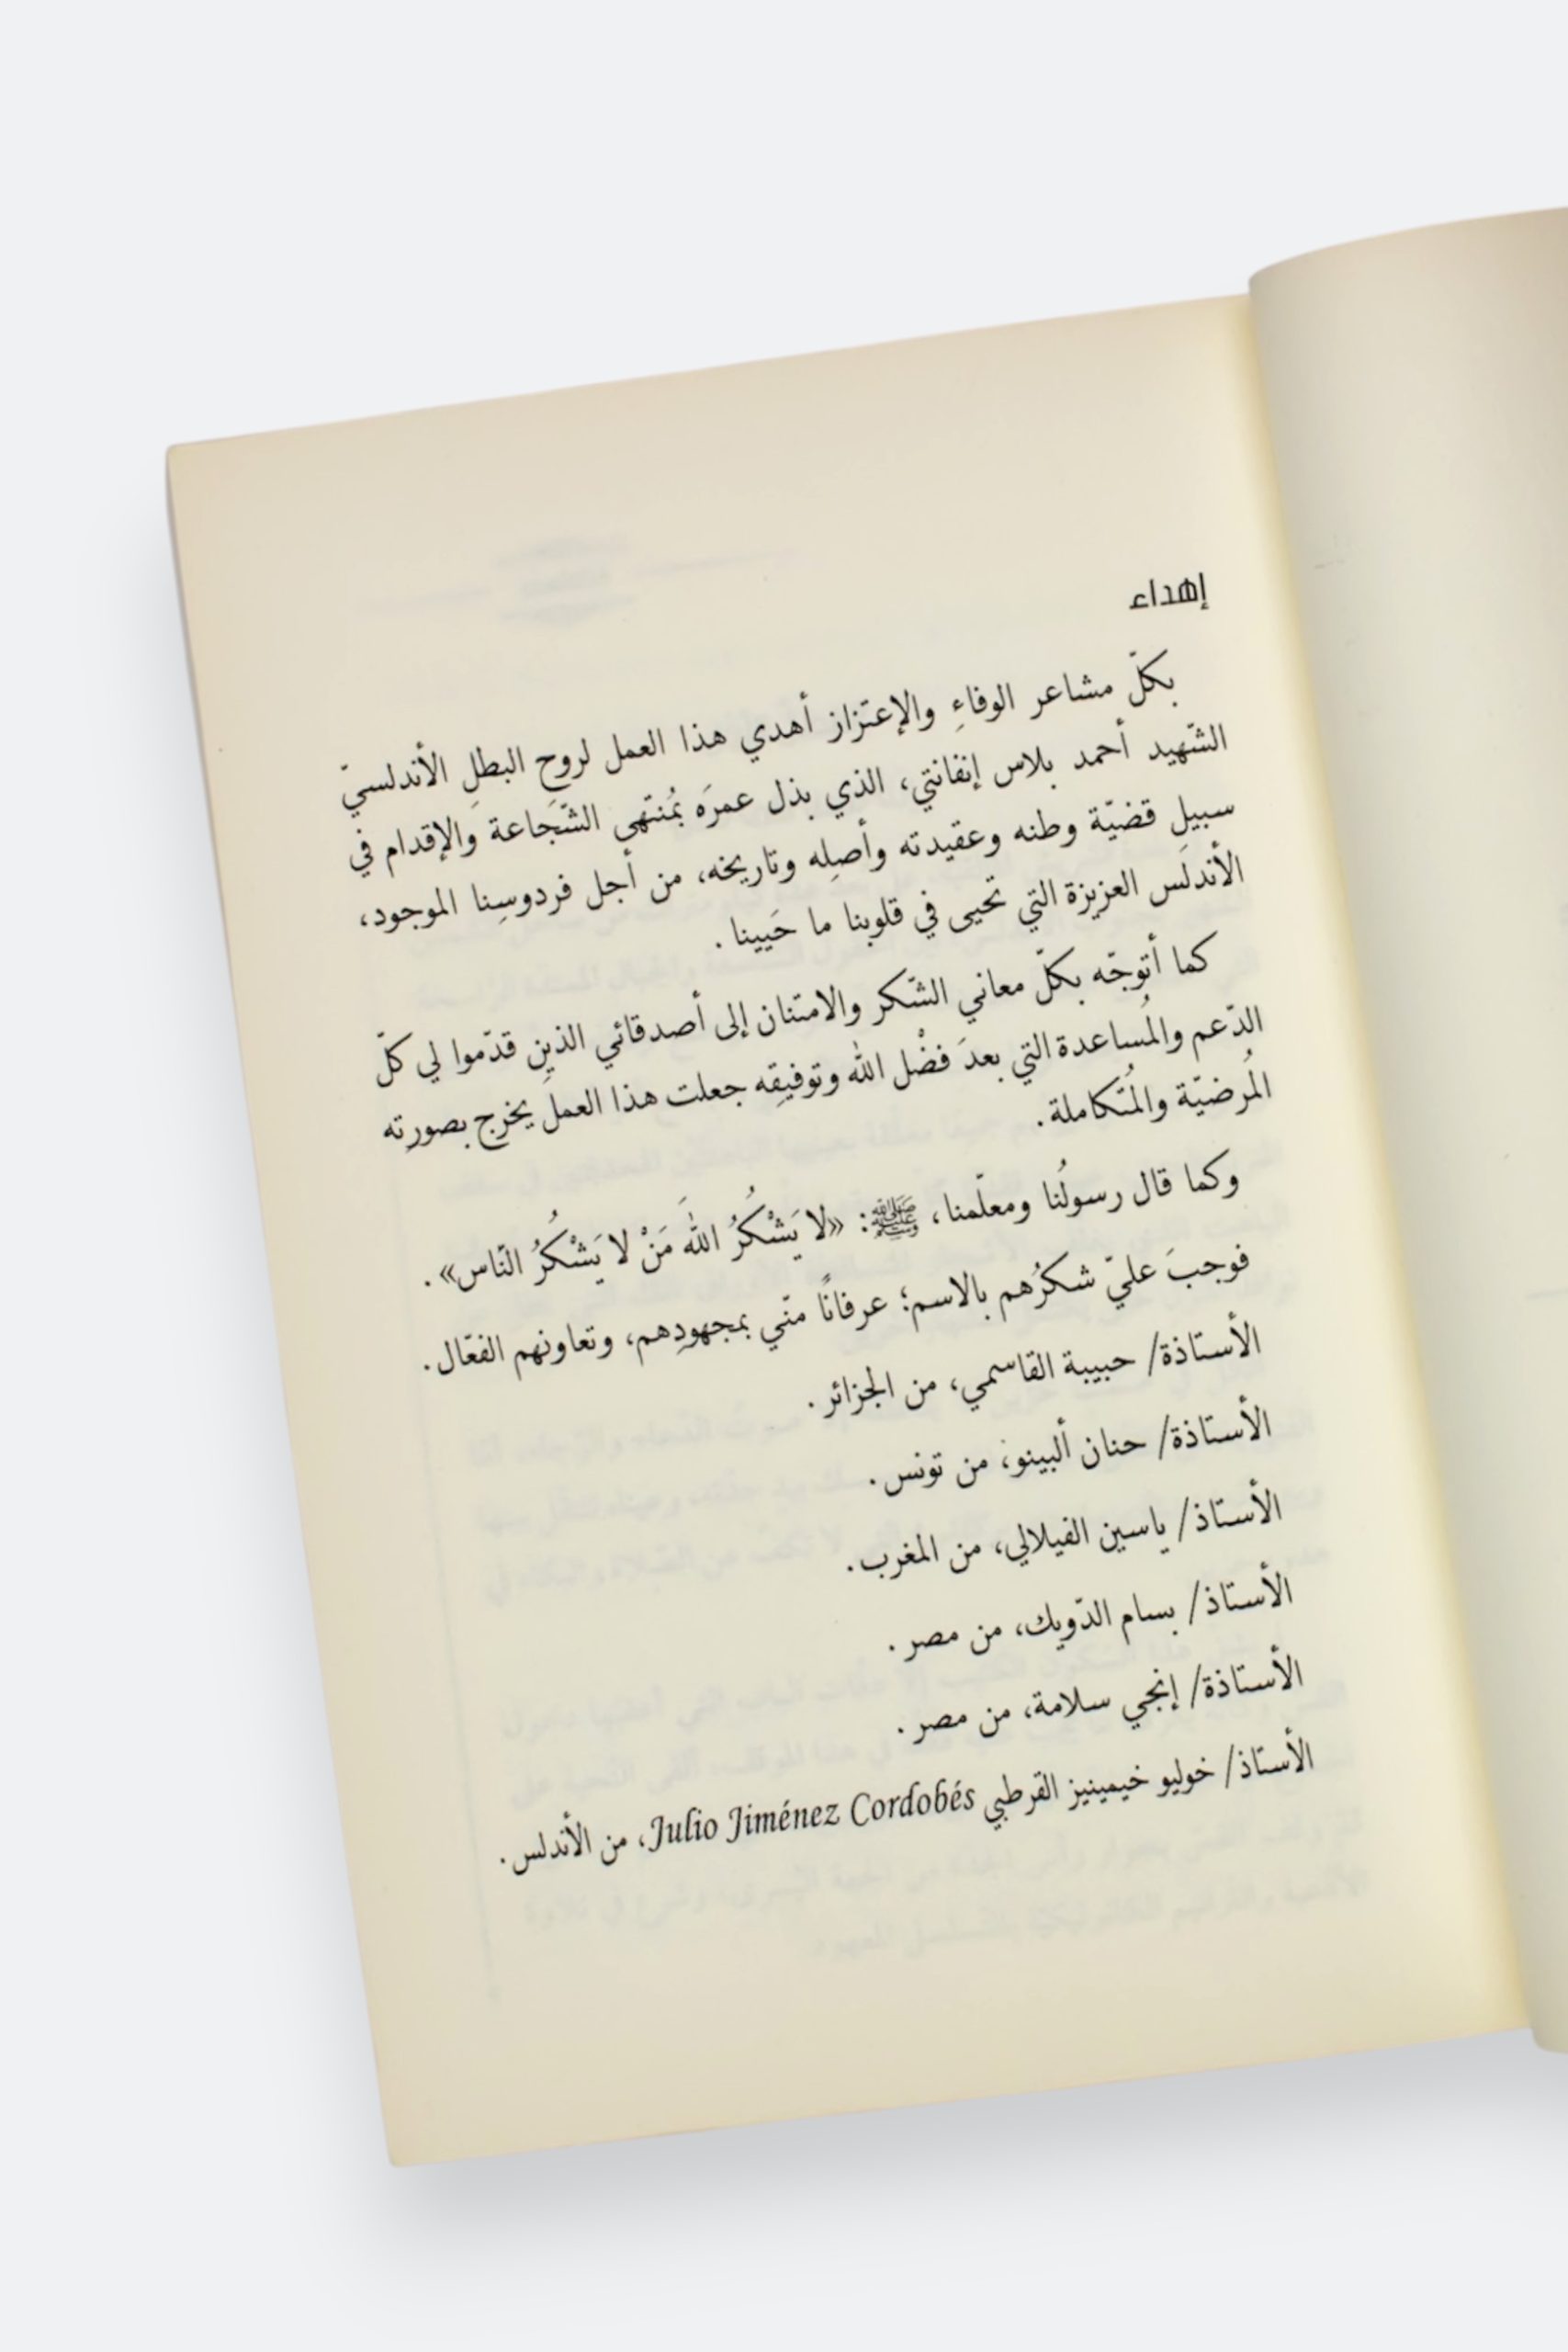 إهداء
بكلّ مشاعر الوفاءِ والإعتزاز أهدي هذا العمل لروحِ البطلِ الأندلسيّ
الشّهيد أحمد بلاس إنفانتي، الذي بذل عمرَه بمُنتهى الشّجَاعة والإقدام في
سبيلِ قضيّة وطنه وعقيدته وأصلِه وتاريخه، من أجل فردوسِنا الموجود،
الأندلس العزيزة التي تحيى في قلوبنا ما حَيينا.
كما أتوجّه بكلّ معاني الشّكر والامتنان إلى أصدقائي الذين قدّموا لي كلّ
الدّعم والمُساعدة التي بعدَ فضْل الله وتوفيقِه جعلت هذا العمل يخرج بصورتِه
المُرضيّة والمُتكاملة.
وكما قال رسولُنا ومعلّمنا، ﷺ: «لا يَشْكُرُ اللهَ مَنْ لا يَشْكُرُ النّاس».
فوجبَ عليّ شكرُهم بالاسم؛ عرفانًا منّي بمجهودِهم، وتعاونهم الفعّال.
الأستاذة/ حبيبة القاسمي، من الجزائر.
الأستاذة/ حنان ألبينو، من تونس.
الأستاذ/ ياسين الفيلالي، من المغرب.
الأستاذ/ بسام الدّويك، من مصر.
الأستاذة/ إنجي سلامة، من مصر.
الأستاذ/ خوليو خيمينيز القرطبي Julio Jiménez Cordobés، من الأندلس.